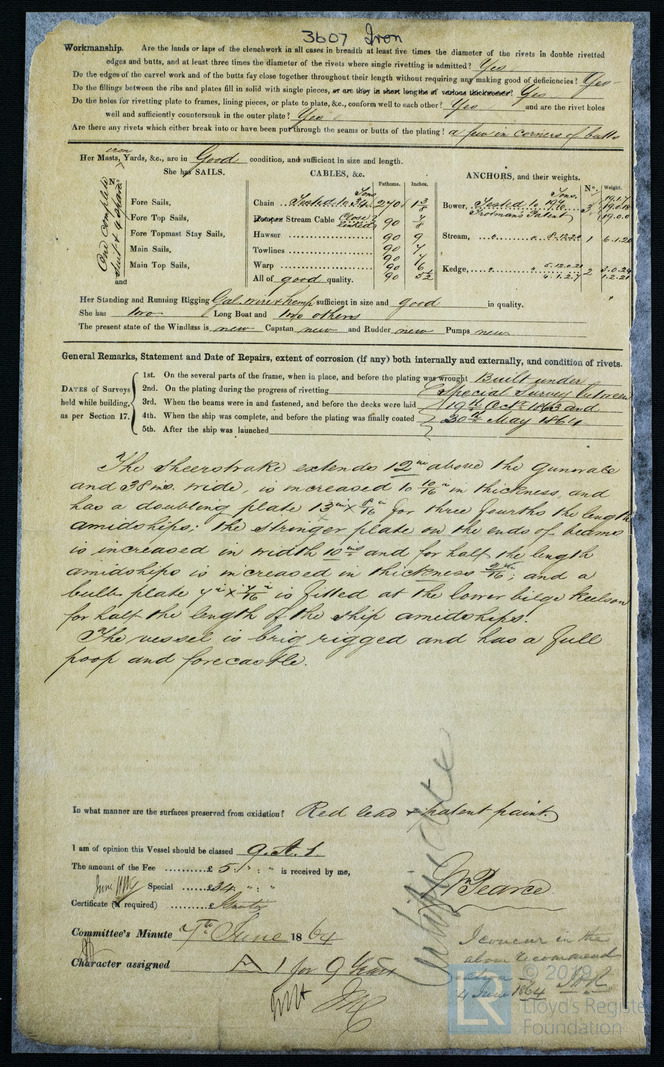 3607 Iron
Workmanship. Are the lands or laps of the clenchwork in all cases in breadth at least five times the diameter of the rivets in double rivetted
edges and butts, and at least three times the diameter of the rivets where single rivetting is admitted? Yes
Do the edges of the carvel work and of the butts fay close together throughout their length without requiring any making good of deficiencies? Yes
Do the fillings between the ribs and plates fill in solid with single pieces, or are they in short lengths of various thicknesses? Yes
Do the holes for rivetting plate to frames, lining pieces, or plate to plate, &c., conform well to each other? Yes and are the rivet holes
well and sufficiently countersunk in the outer plate? Yes
Are there any rivets which either break into or have been put through the seams or butts of the plating? a few in corners of butts
iron
Her Masts, Yards, &c., are in Good condition, and sufficient in size and length.
She has SAILS. CABLES, &c. ANCHORS, and their weights.
Fathoms. Inches. Nº. Weight.
One complete suit & 4 spare
Fore Sails,
Fore Top Sails,
Fore Topmast Stay Sails,
Main Sails,
Main Top Sails,
and
Chain Tested to Tons 270
Stream Cable 90 7/8
Hawser 90 9
Towlines 90 7
Warp 90 6
All of good quality.
Bower, Tested to Tons
Trotman's Patent
Stream, 1
Kedge, 2
Her Standing and Running Rigging Gal. wire & hemp sufficient in size and good in quality.
She has two Long Boat and two others
The present state of the Windlass is new Capstan new and Rudder new Pumps new
General Remarks, Statement and Date of Repairs, extent of corrosion (if any) both internally and externally, and condition of rivets.
DATES of Surveys held while building, as per Section 17.
1st. On the several parts of the frame, when in place, and before the plating was wrought Built under
2nd. On the plating during the progress of rivetting Special Survey between
3rd. When the beams were in and fastened, and before the decks were laid 19th Octr 1863 and
4th. When the ship was complete, and before the plating was finally coated 30th May 1864
5th. After the ship was launched
The Sheerstrake extends 12 ins above the Gunwale
and 38 ins. wide, is increased to 10/16 in thickness, and
has a doubling plate 13 x /16 for three fourths the length
amidships: the stringer plate on the ends of beams
is increased in width 10 ins and for half the length
amidships is increased in thickness /16; and a
bulb plate 7 x 7/16 is fitted at the lower bilge Keelson
for half the length of the ship amidships.
The vessel is brig rigged and has a full
poop and forecastle.
In what manner are the surfaces preserved from oxidation? Red lead & patent paint
I am of opinion this Vessel should be classed 9. A. 1.
The amount of the Fee £5 " " is received by me,
Special £34 " "
Certificate (if required) £
Wm Pearce
Committee's Minute 7th June 1864
Character assigned A 1 for 9 Years
Certificate
I concur in the
above recommend
ation
4 June 1864
LR
© 2019
Lloyd's Register
Foundation